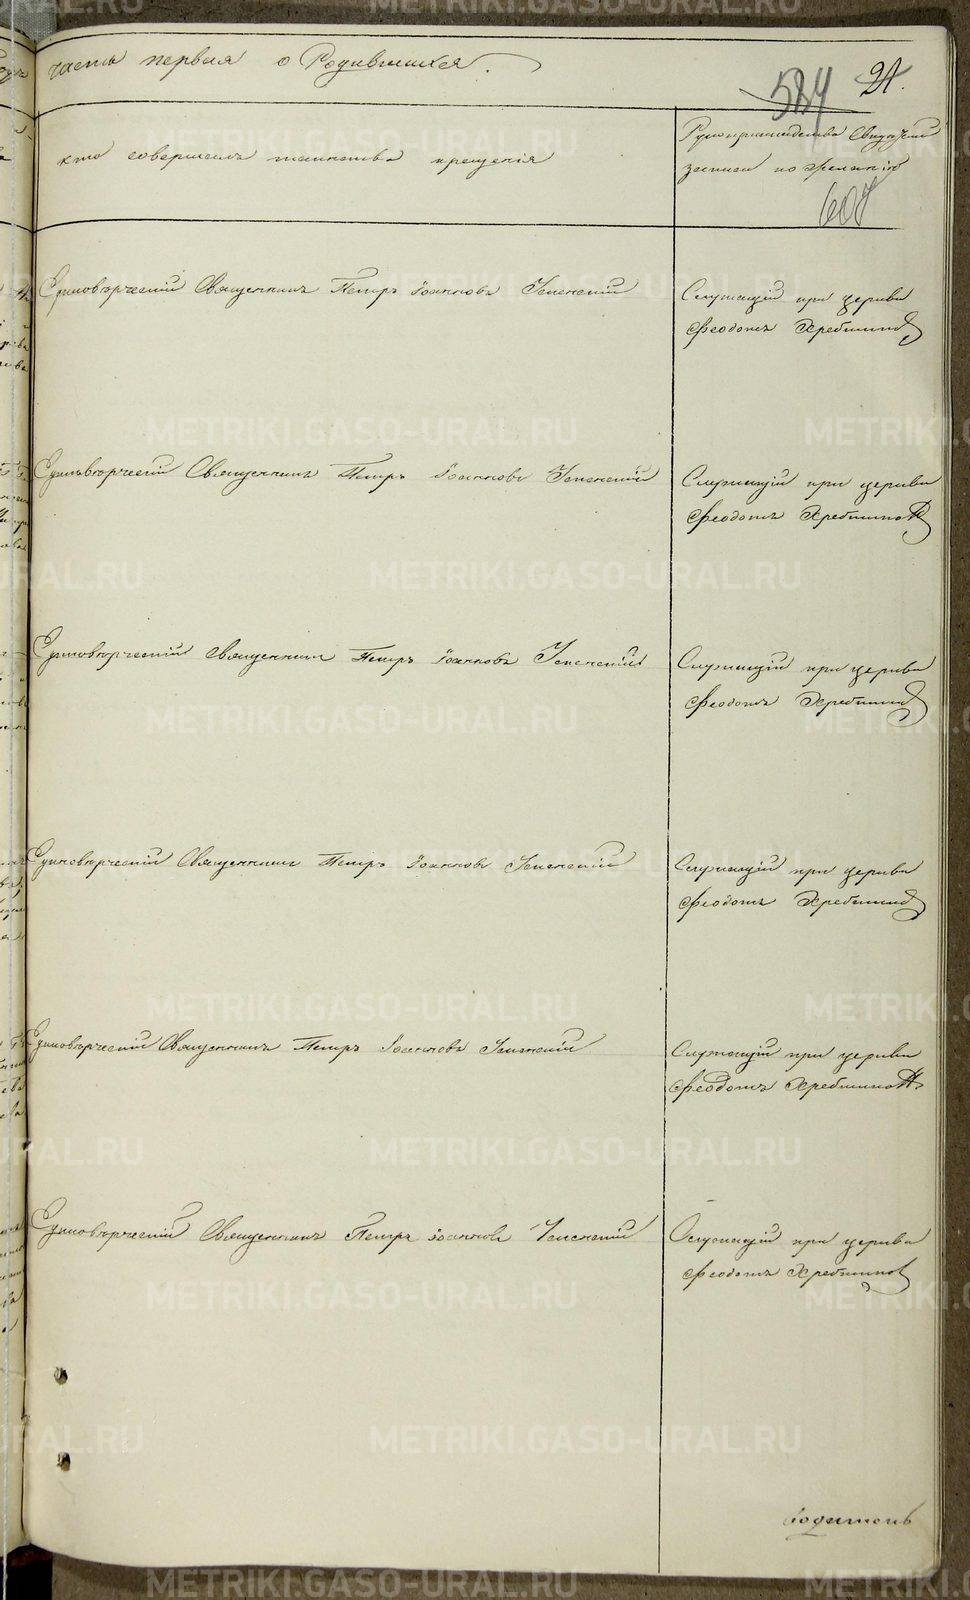 часть первая о Родившихся.
584 21.
кто совершалъ таинство крещенія
Рукоприкладство Свидѣтелей
записи по желанію
607
Единоверческий Священникъ Петръ Іоанновъ Успенский
Служащій при церкви
Феодотъ Хребтиковъ
Единоверческий Священникъ Петръ Іоанновъ Успенский
Служащій при церкви
Феодотъ Хребтиковъ
Единоверческий Священник Петръ Іоанновъ Успенский
Служащій при церкви
Феодотъ Хребтиковъ
Единоверческий Священникъ Петръ Іоанновъ Успенский
Служащій при церкви
Феодотъ Хребтиковъ
Единоверческий Священникъ Петръ Іоанновъ Успенский
Служащій при церкви
Феодотъ Хребтиковъ
Единоверческий Священникъ Петръ Іоанновъ Успенский
Служащій при церкви
Феодотъ Хребтиковъ
METRIKI.GASO-URAL.RU